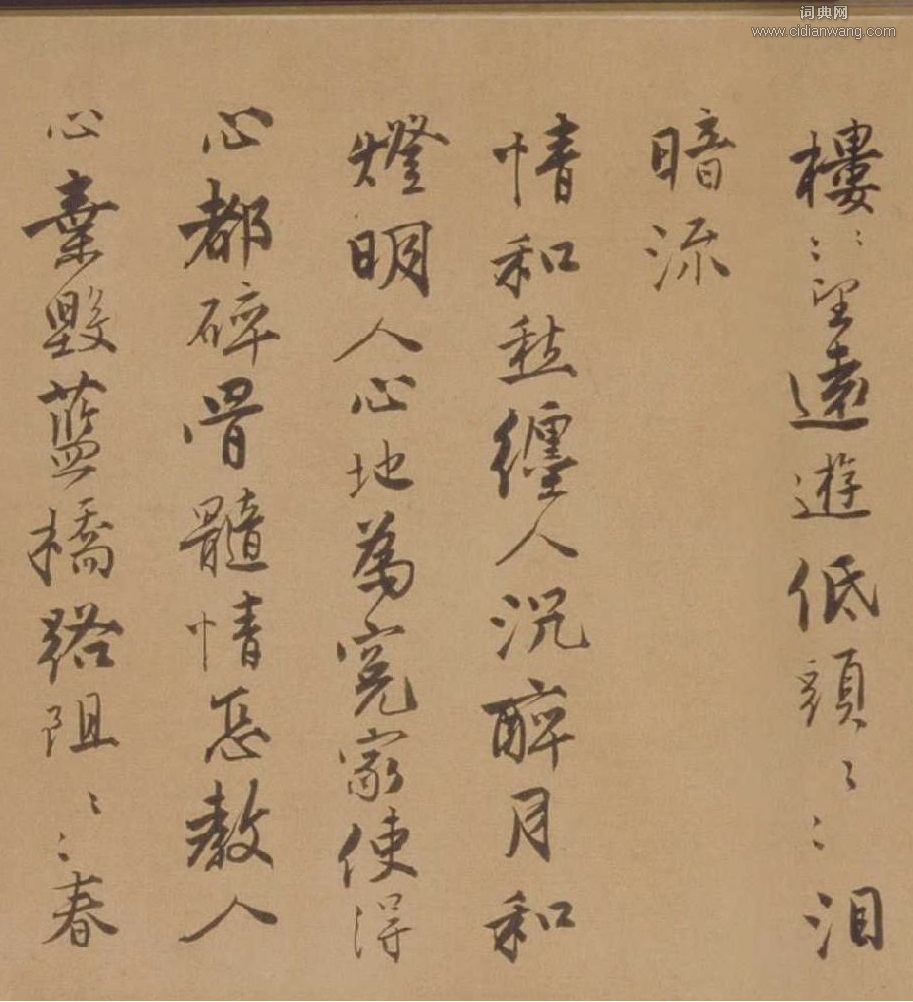 词典网
www.cidianwang.com
樓〻望遠遊低頭〻〻泪
暗流
情和愁纏人沉醉月和
燈明人心地為寃家使得
心都碎骨髓情怎教人
心棄毀藍橋路阻〻〻春